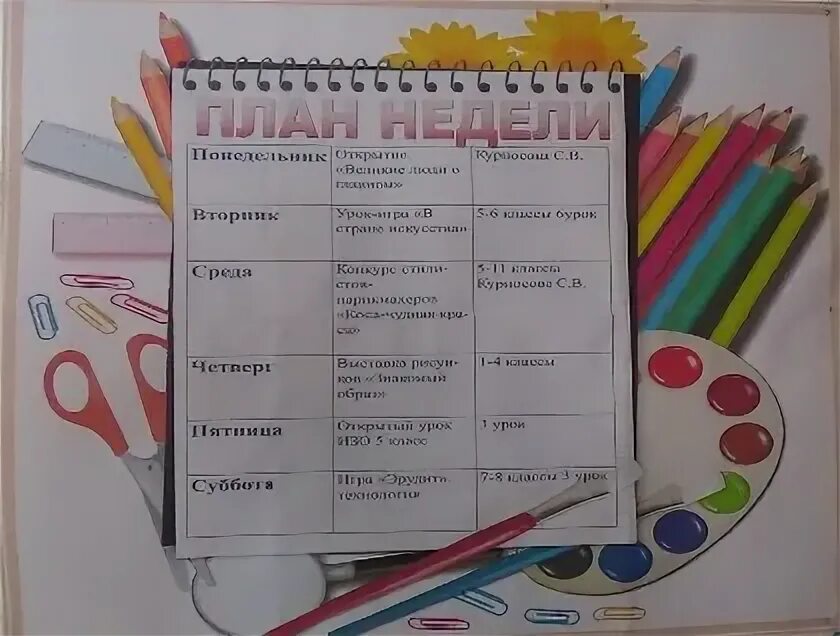 ПЛАН НЕДЕЛИ
Понедельник
Открытие
«Великие люди о
Курносова С.В.
Вторник
Урок-игра «В
страну искусства»
5-6 классы 6урок
Среда
Конкурс стили-
стов-
парикмахеров
«Коса-чудная кра-
са»
5-11 классы
Курносова С.В.
Четверг
Выставка рисун-
ков «Знакомый
образ»
1-4 классы
Пятница
Открытый урок
ИЗО 5 класс
урок
Суббота
Игра «Эрудит
технологии
7-8 классы 3 урок